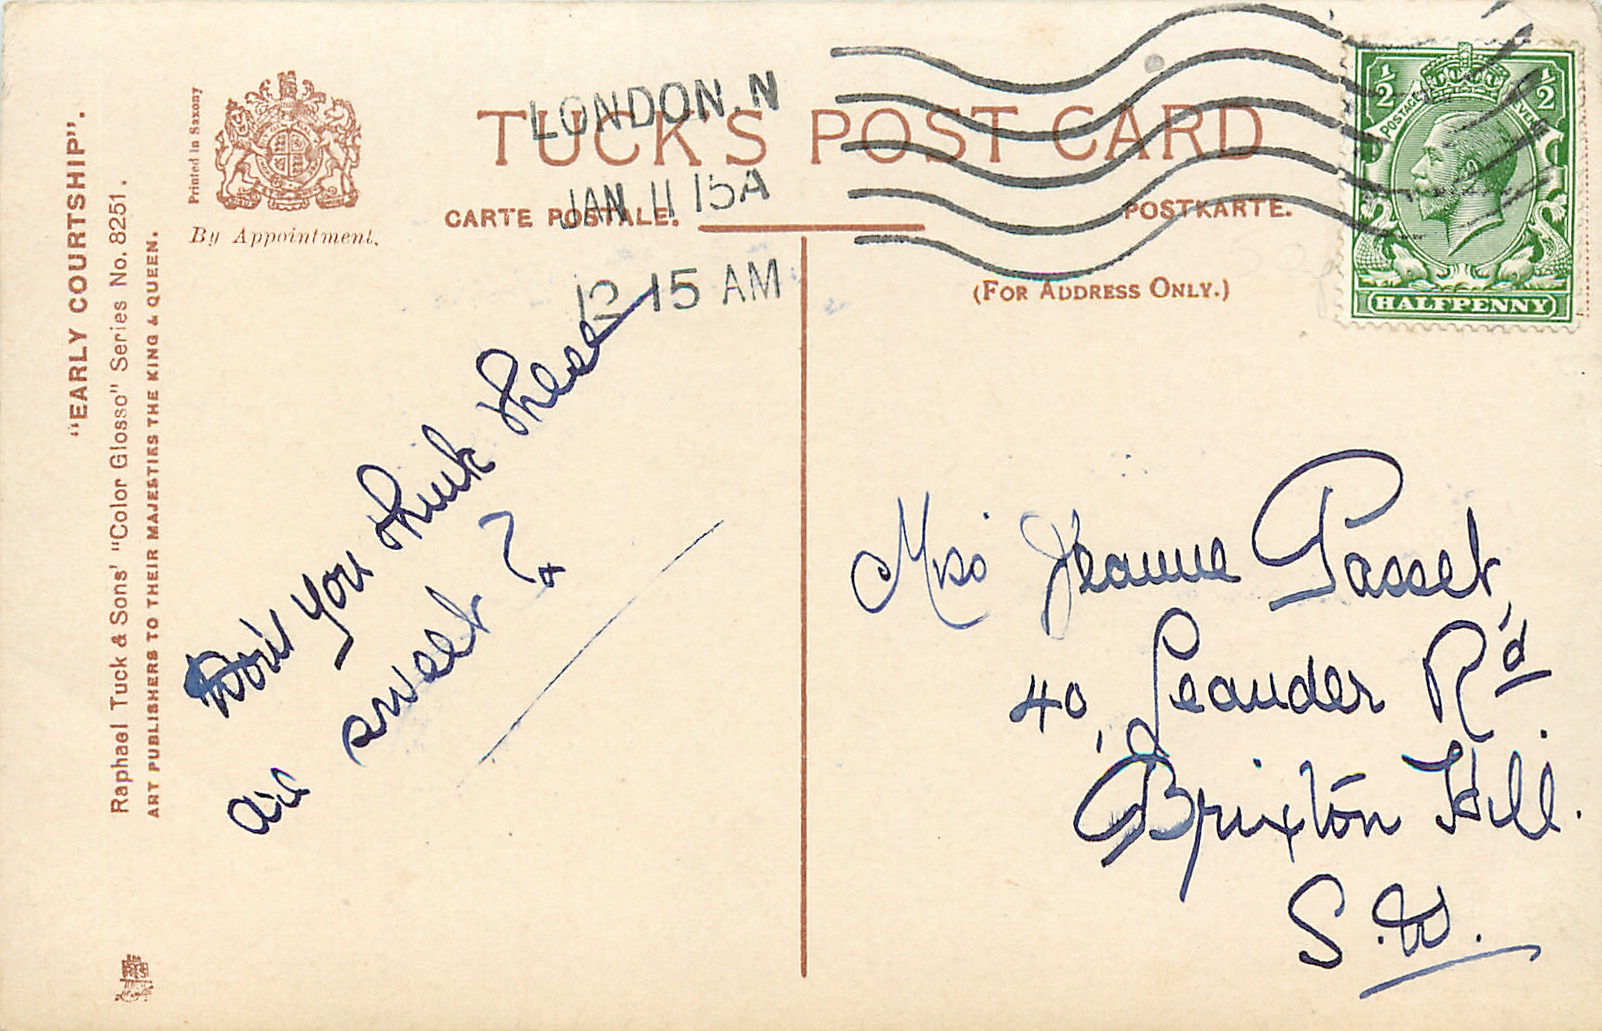 "EARLY COURTSHIP".
Raphael Tuck & Sons' "Color Glosso" Series No. 8251.
ART PUBLISHERS TO THEIR MAJESTIES THE KING & QUEEN.
Printed in Saxony
By Appointment.
TUCK'S POST CARD
CARTE POSTALE.
POSTKARTE.
(FOR ADDRESS ONLY.)
LONDON.N
JAN 11 15A
12 15 AM
POSTAGE REVENUE
1/2
1/2
HALFPENNY
Don't you think these
are sweet?
Miss Jeanne Passet,
40, Leander Rd
Brixton Hill.
S.W.